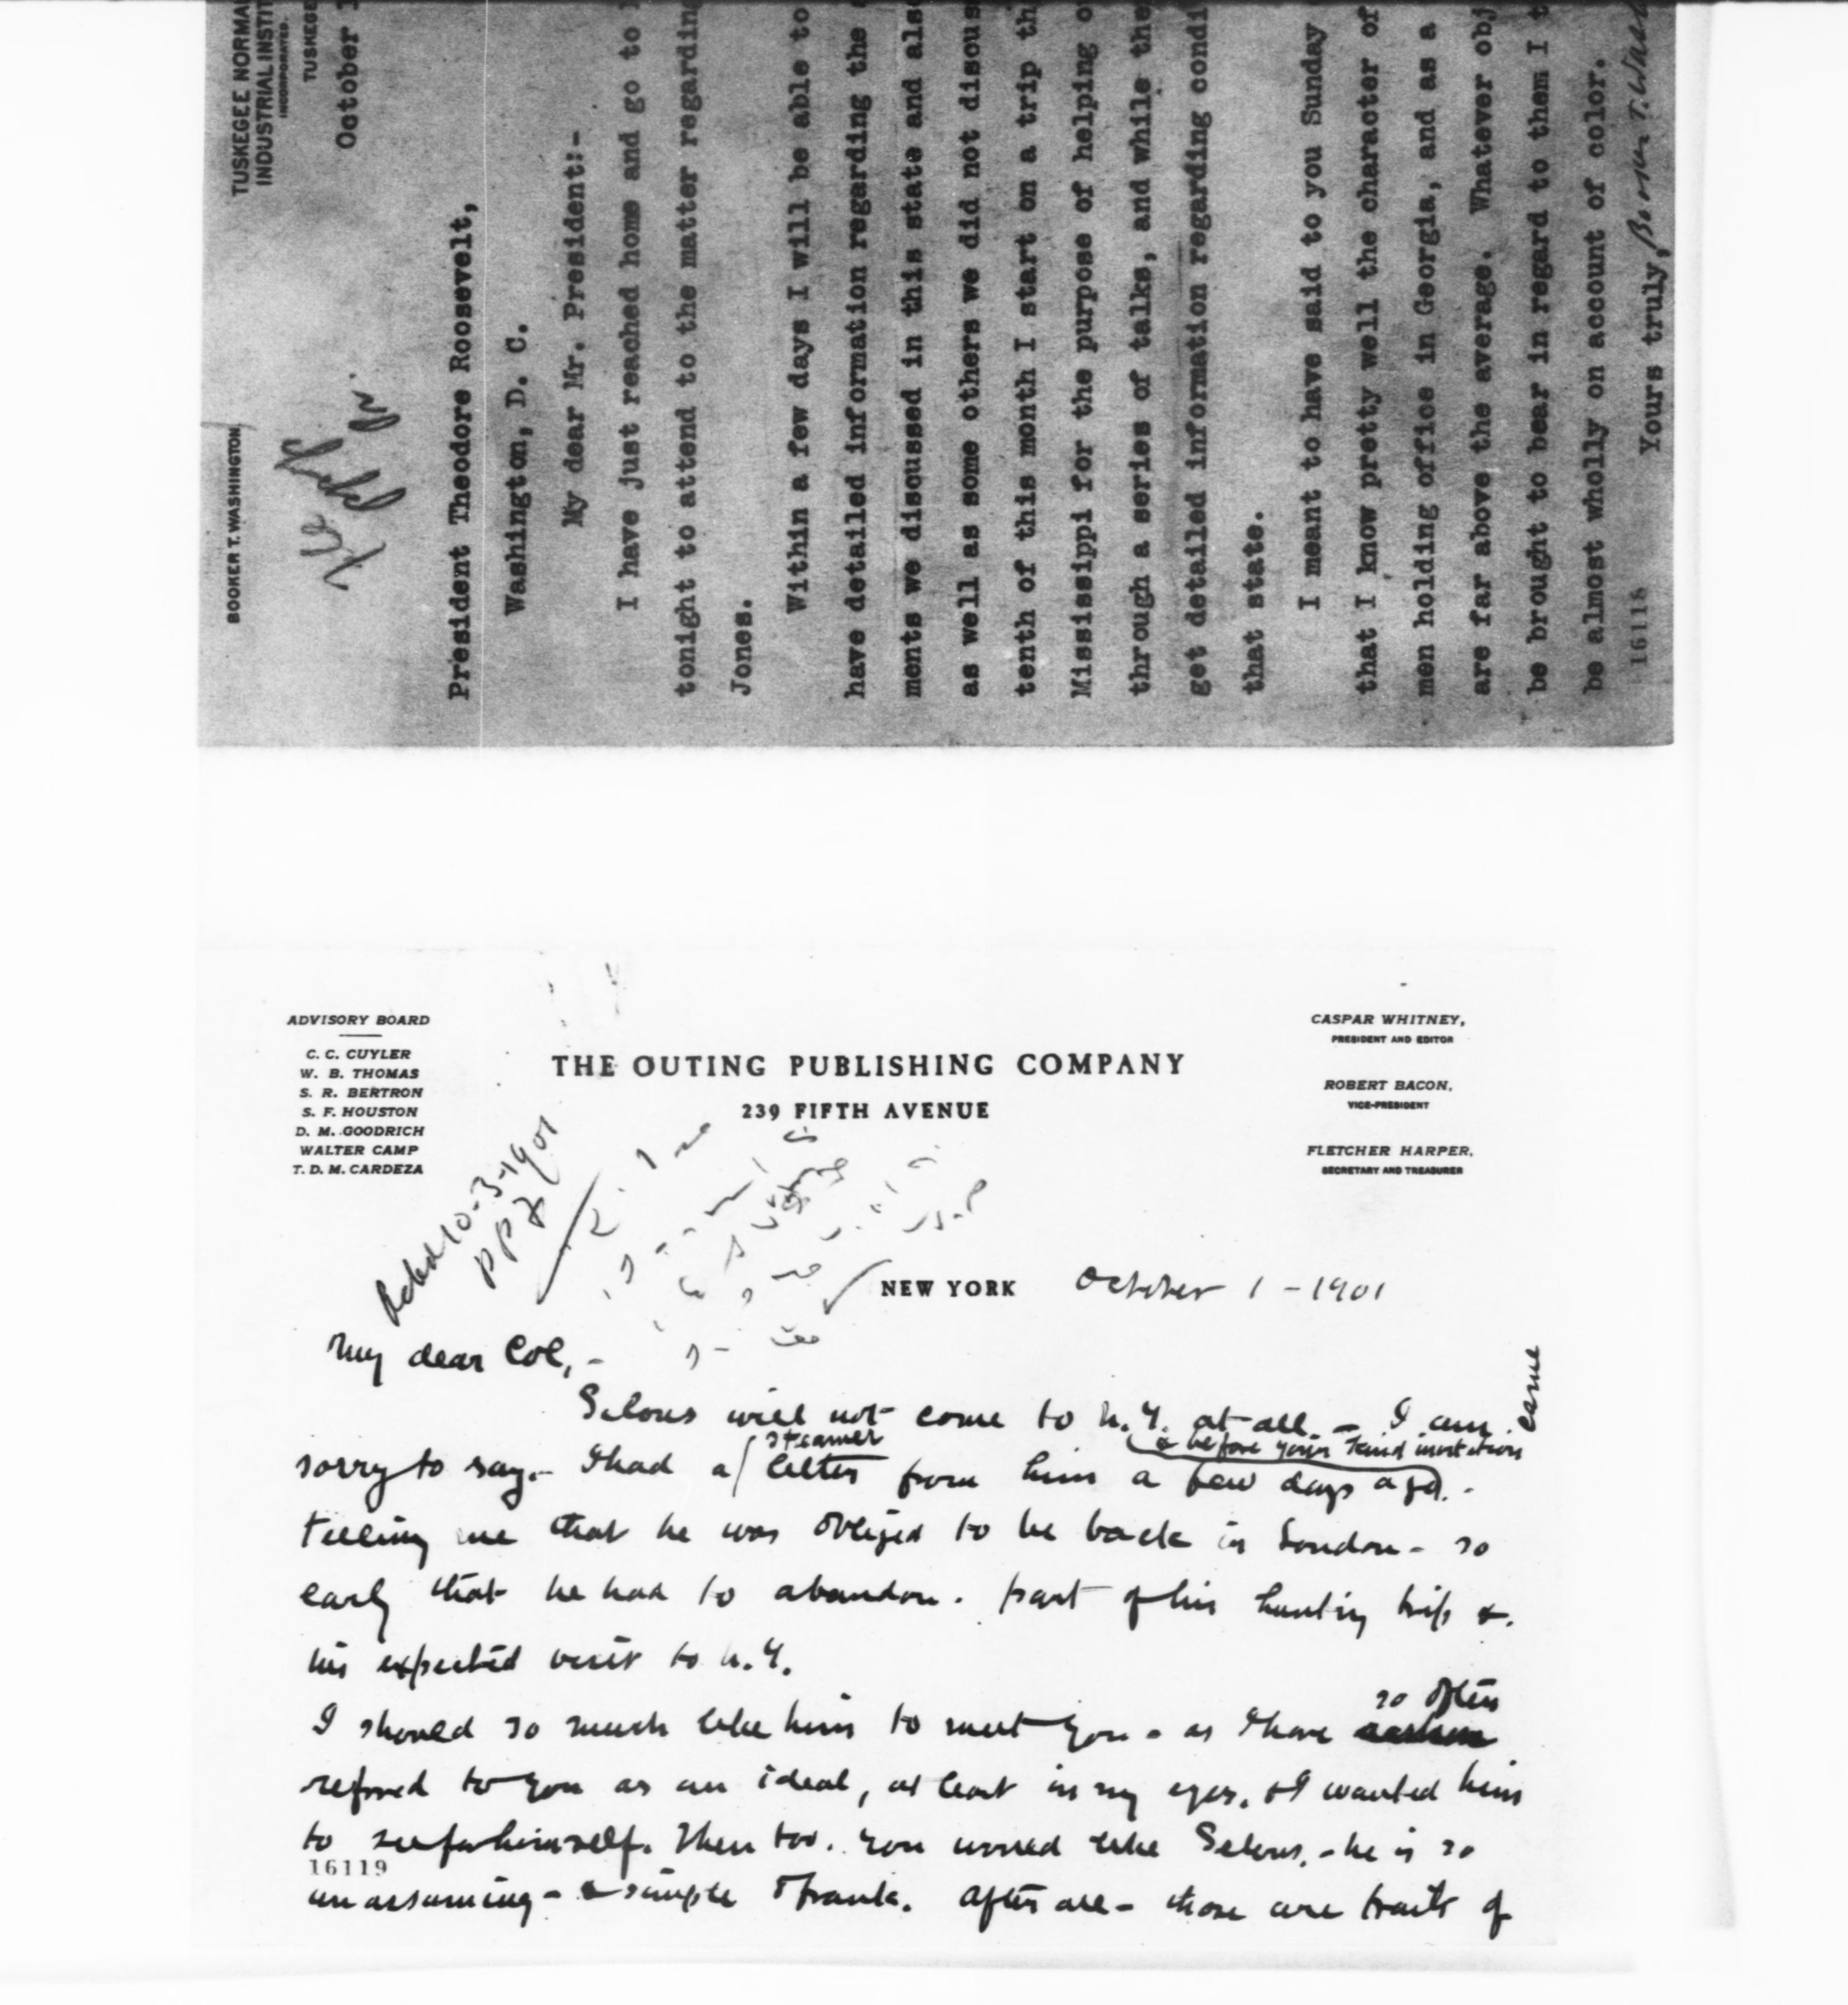 BOOKER T. WASHINGTON
TUSKEGEE NORMA
INDUSTRIAL INSTIT
INCORPORATED.
TUSKEGE
October 1
President Theodore Roosevelt,
Washington, D. C.
My dear Mr. President:-
I have just reached home and go to
tonight to attend to the matter regardin
Jones.
Within a few days I will be able to
have detailed information regarding the
ments we discussed in this state and als
as well as some others we did not discus
tenth of this month I start on a trip th
Mississippi for the purpose of helping o
through a series of talks, and while the
get detailed information regarding condi
that state.
I meant to have said to you Sunday
that I know pretty well the character of
men holding office in Georgia, and as a
are far above the average. Whatever obj
be brought to bear in regard to them I t
be almost wholly on account of color.
Yours truly, Booker T. Wash
16118
ADVISORY BOARD
C. C. CUYLER
W. B. THOMAS
S. R. BERTRON
S. F. HOUSTON
D. M. GOODRICH
WALTER CAMP
T. D. M. CARDEZA
THE OUTING PUBLISHING COMPANY
239 FIFTH AVENUE
CASPAR WHITNEY,
PRESIDENT AND EDITOR
ROBERT BACON,
VICE-PRESIDENT
FLETCHER HARPER,
SECRETARY AND TREASURER
Ackd 10-3-1901
PPF
NEW YORK October 1 - 1901
My dear Col,-
Selous will not come to N.Y. at all. - I am
sorry to say. - I had a steamer letter from him a few days ago. -
& before your kind invitation came
telling me that he was obliged to be back in London - so
early that he had to abandon part of his hunting trip &
his expected visit to N.Y.
I should so much like him to meet you - as I have so often
referred to you as an ideal, at least in my eyes, & I wanted him
to see for himself. Then too. you would like Selous, - he is so
16119
unassuming - & simple & frank. After all - those are traits of